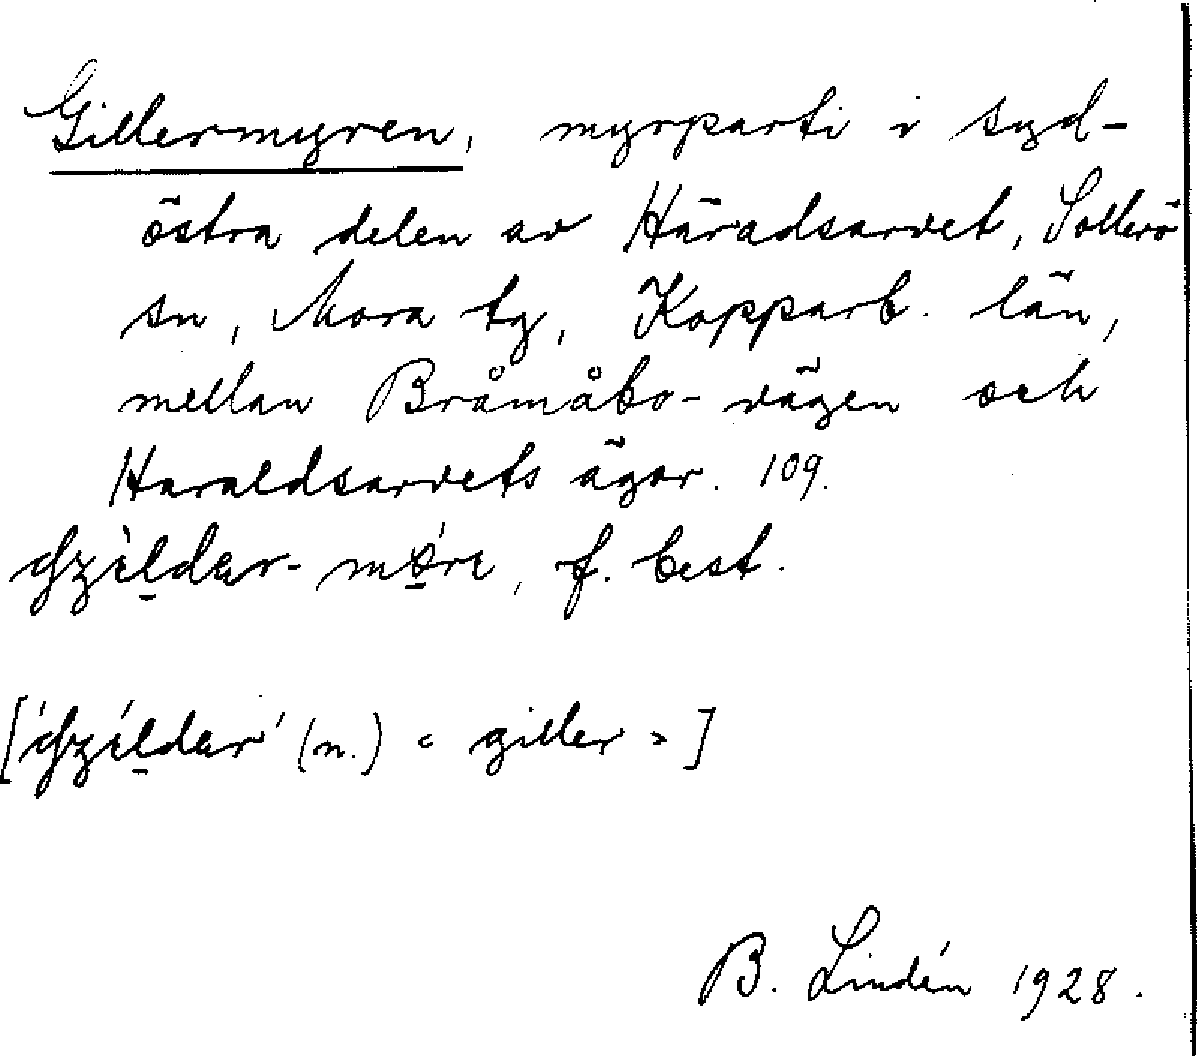 Gillermyren, myrparti i syd-
östra delen av Häradsarvet, Sollerö
sn, Mora tg, Kopparb. län,
mellan Bråmåbo-vägen och
Haraldsarvets ägor. 109.
f. best.
(n.) "giller"]
B. Lindén 1928.